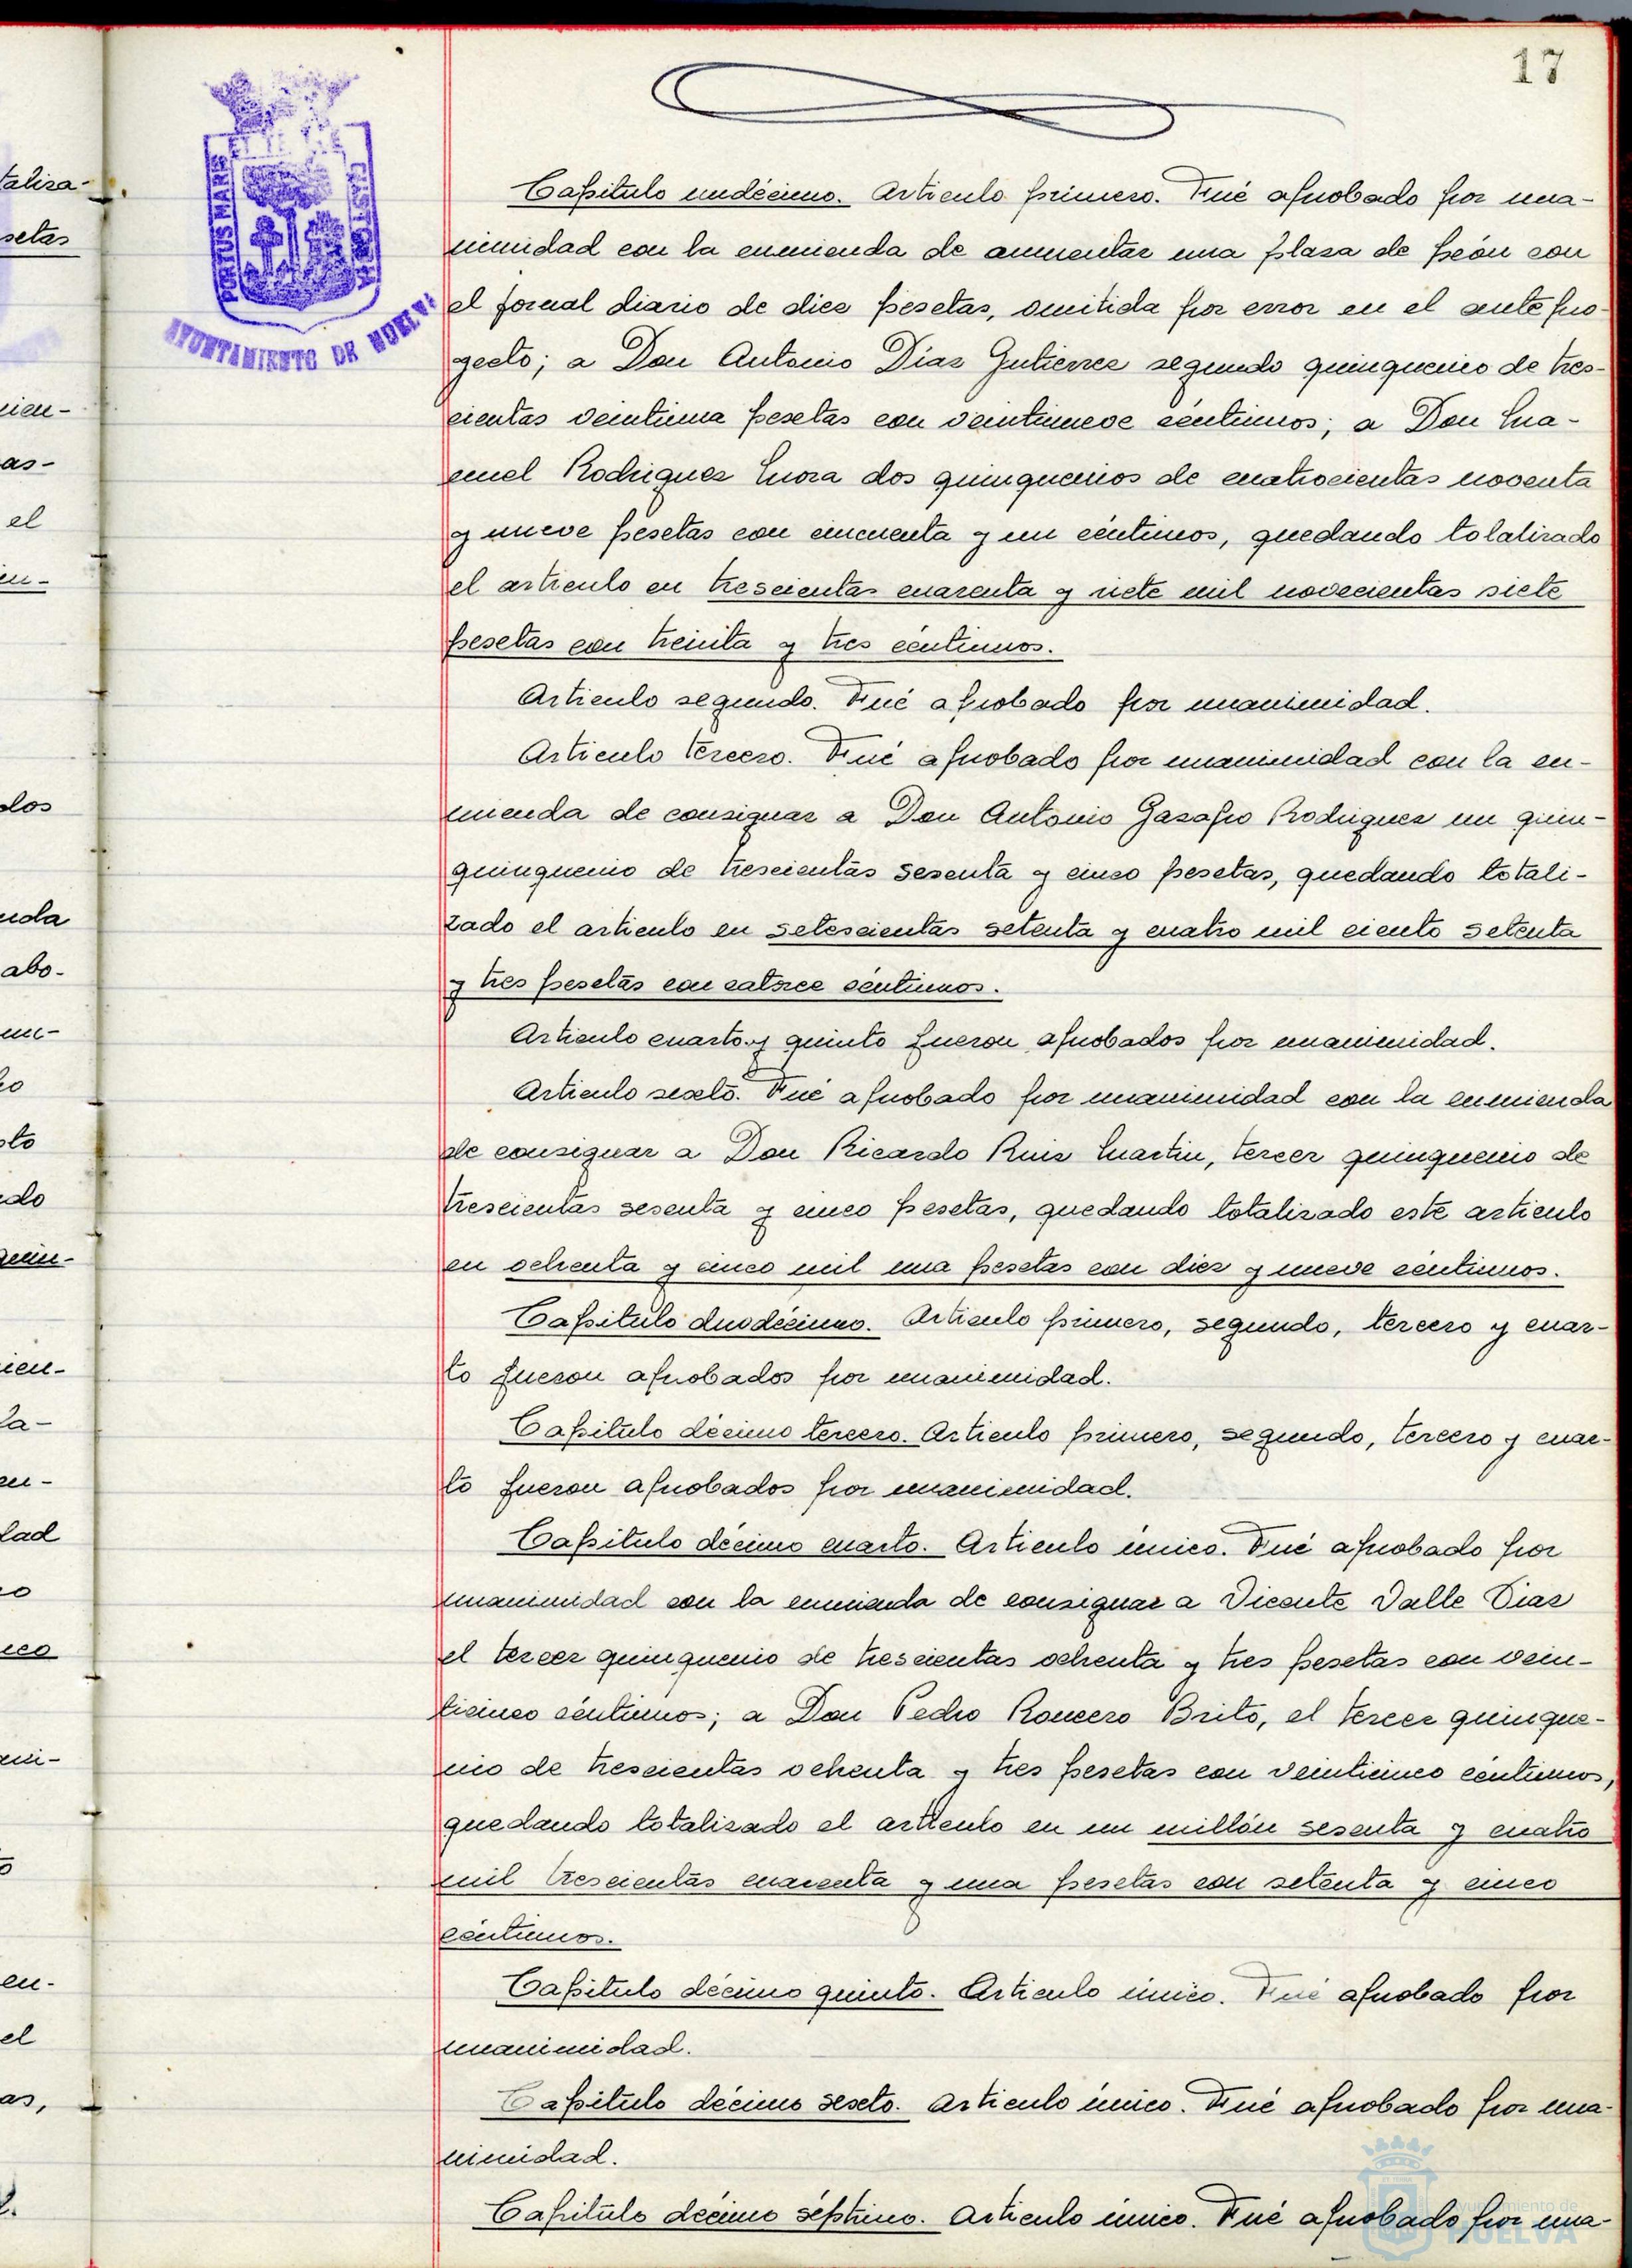 17
PORTUS MARIS ET TERRE CUSTODIA
AYUNTAMIENTO DE HUELVA
taliza-
setas
cien-
as-
el
in-
dos
nda
abo-
un-
to
do
quin-
cien-
la-
en-
dad
co
en-
el
as,
Capitulo undécimo. Articulo primero. Fué aprobado por una-
nimidad con la enmienda de aumentar una plaza de peón con
el jornal diario de diez pesetas, omitida por error en el antepro-
yecto; a Don Antonio Diaz Gutierrez segundo quinquenio de tres-
cientas veintiuna pesetas con veintinueve céntimos; a Don Ma-
nuel Rodriguez Mora dos quinquenios de cuatrocientas noventa
y nueve pesetas con cincuenta y un céntimos, quedando totalizado
el articulo en trescientas cuarenta y siete mil novecientas siete
pesetas con treinta y tres céntimos.
Articulo segundo. Fué aprobado por unanimidad.
Articulo tercero. Fué aprobado por unanimidad con la en-
mienda de consignar a Don Antonio Gazapo Rodriguez un quin-
quinquenio de trescientas sesenta y cinco pesetas, quedando totali-
zado el articulo en setescientas setenta y cuatro mil ciento setenta
y tres pesetas con catorce céntimos.
Articulo cuarto y quinto fueron aprobados por unanimidad.
Articulo sexto. Fué aprobado por unanimidad con la enmienda
de consignar a Don Ricardo Ruiz Martin, tercer quinquenio de
trescientas sesenta y cinco pesetas, quedando totalizado este articulo
en ochenta y cinco mil una pesetas con diez y nueve céntimos.
Capitulo duodécimo. Articulo primero, segundo, tercero y cuar-
to fueron aprobados por unanimidad.
Capitulo décimo tercero. Articulo primero, segundo, tercero y cuar-
to fueron aprobados por unanimidad.
Capitulo décimo cuarto. Articulo único. Fué aprobado por
unanimidad con la enmienda de consignar a Vicente Valle Diaz
el tercer quinquenio de trescientas ochenta y tres pesetas con vein-
ticinco céntimos; a Don Pedro Roncero Brito, el tercer quinque-
nio de trescientas ochenta y tres pesetas con veinticinco céntimos,
quedando totalizado el articulo en un millón sesenta y cuatro
mil trescientas cuarenta y una pesetas con setenta y cinco
céntimos.
Capitulo décimo quinto. Articulo único. Fué aprobado por
unanimidad.
Capitulo décimo sexto. Articulo único. Fué aprobado por una-
nimidad.
Capitulo décimo séptimo. Articulo único. Fué aprobado por una-
Ayuntamiento de
HUELVA